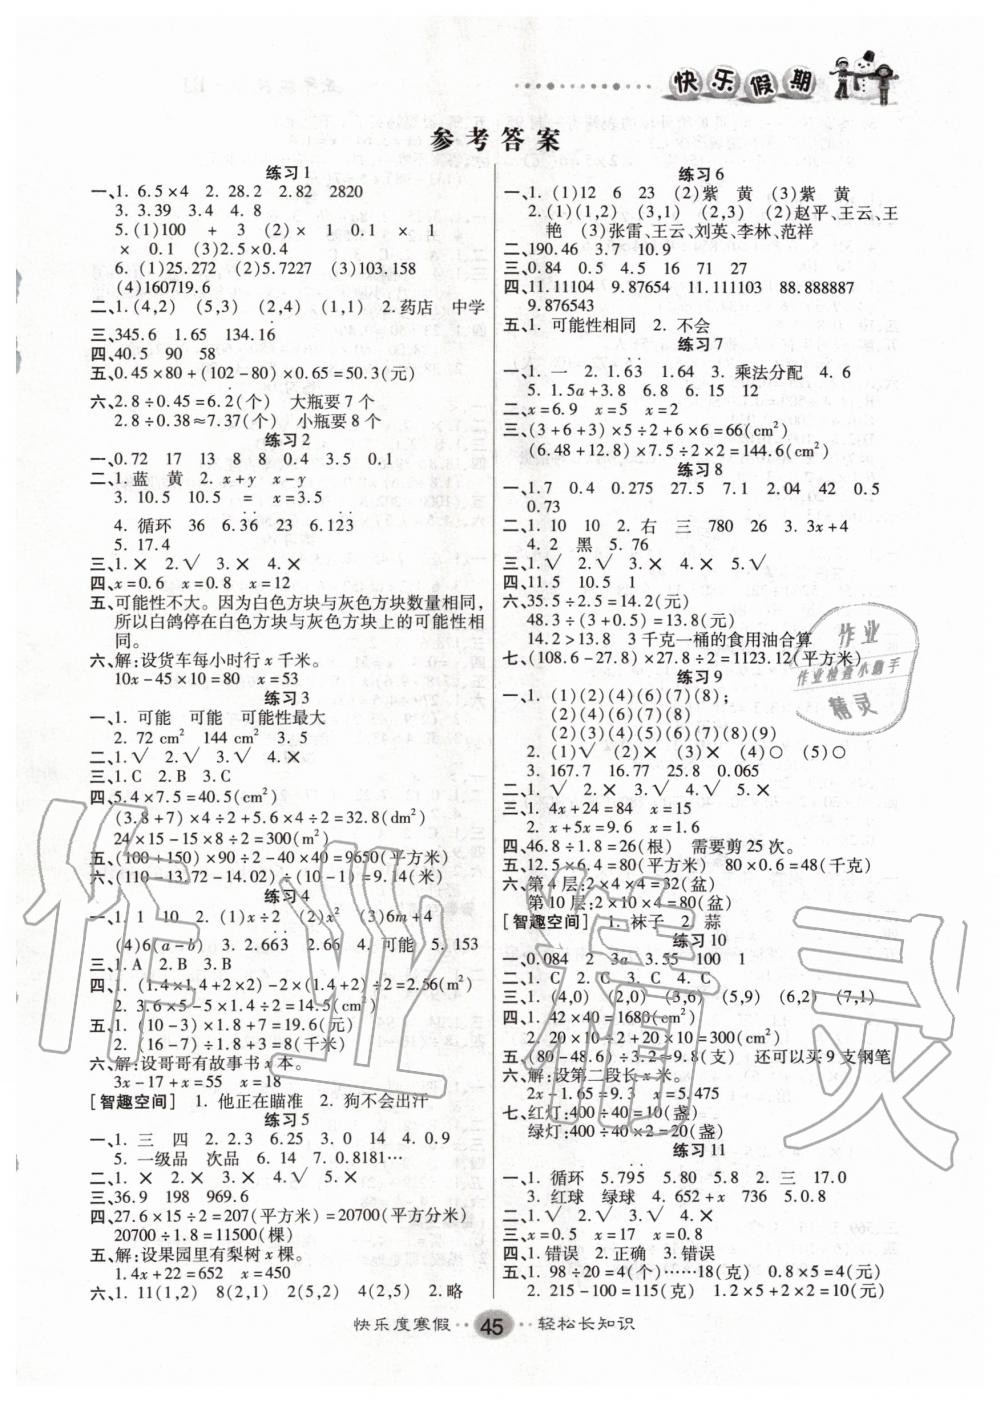 快乐假期
参考答案
练习1
一、1. 6.5×4　2. 28.2　2.82　2820
3. 3.39　3.4　4. 8
5. (1)100　+　3　(2)×　1　0.1　×　1
×　0.1　(3)2.5×0.4
6. (1)25.272　(2)5.7227　(3)103.158
(4)160719.6
二、1. (4,2)　(5,3)　(2,4)　(1,1)　2. 药店　中学
三、345.6　1.65　134.16
四、40.5　90　58
五、0.45×80+(102-80)×0.65=50.3(元)
六、2.8÷0.45=6.2̇(个)　大瓶要7个
2.8÷0.38≈7.37(个)　小瓶要8个
练习2
一、0.72　17　13　8　8　0.4　3.5　0.1
二、1. 蓝　黄　2. x+y　x-y
3. 10.5　10.5　=　x=3.5
4. 循环　36　6.3̇6̇　23　6.1̇23̇
5. 17.4
三、1. ×　2. √　3. ×　4. ×
四、x=0.6　x=0.8　x=12
五、可能性不大。因为白色方块与灰色方块数量相同，
所以白鸽停在白色方块与灰色方块上的可能性相
同。
六、解:设货车每小时行x千米。
10x-45×10=80　x=53
练习3
一、1. 可能　可能　可能性最大
2. 72 cm²　144 cm²　3. 5
二、1. √　2. √　3. √　4. ×
三、1. C　2. B　3. C
四、5.4×7.5=40.5(cm²)
(3.8+7)×4÷2+5.6×4÷2=32.8(dm²)
24×15-15×8÷2=300(m²)
五、(100+150)×90÷2-40×40=9650(平方米)
六、(110-13.72-14.02)÷(10-1)=9.14(元)
练习4
一、1. 1　10　2. (1)x÷2　(2)x²　(3)6m+4
(4)6(a-b)　3. 2.6̇63̇　2.66　4. 可能　5. 153
三、1. A　2. B　3. B
四、1. (1.4×1.4+2×2)-2×(1.4+2)÷2=2.56(m²)
2. 3.6×5-5×1.4÷2=14.5(cm²)
五、1. (10-3)×1.8+7=19.6(元)
2. (16-7)÷1.8+3=8(千米)
六、解:设哥哥有故事书x本。
3x-17+x=55　x=18
[智趣空间]　1. 他正在瞄准　2. 狗不会出汗
练习5
一、1. 三　四　2. 2.3　6.25　3. 0　14　4. 0.9
5. 一级品　次品　6. 14　7. 0.8181…
二、1. ×　2. ×　3. ×　4. √　5. ×
三、36.9　198　969.6
四、27.6×15÷2=207(平方米)=20700(平方分米)
20700÷1.8=11500(棵)
五、解:设果园里有梨树x棵。
1.4x+22=652　x=450
六、1. 11(1,2)　8(2,1)　2(5,2)　4(4,2)　2. 略
练习6
一、1. (1)12　6　23　(2)紫　黄　(3)紫　黄
2. (1)(1,2)　(3,1)　(2,3)　(2)赵平、王云、王
艳　(3)张雷、王云、刘英、李林、范祥
二、190.46　3.7　10.9
三、0.84　0.5　4.5　16　71　27
四、11.11104　9.87654　11.111103　88.888887
9.876543
五、1. 可能性相同　2. 不会
练习7
一、1. 一　2. 1.6̇3̇　1.64　3. 乘法分配　4. 6
5. 1.5a+3.8　6.8　6. 15　12
二、x=6.9　x=5　x=2
三、(3+6+3)×5÷2+6×6=66(cm²)
(6.48+12.8)×7.5÷2×2=144.6(cm²)
练习8
一、1.7　0.4　0.275　27.5　7.1　2.04　42　0.5
0.73
二、1. 10　10　2. 右　三　780　26　3. 3x+4
4. 2　黑　5. 76
三、1. √　2. √　3. ×　4. ×　5. √
四、11.5　10.5　1
六、35.5÷2.5=14.2(元)
48.3÷(3+0.5)=13.8(元)
14.2>13.8　3千克一桶的食用油合算
七、(108.6-27.8)×27.8÷2=1123.12(平方米)
练习9
一、1. (1)(2)(4)(6)(7)(8);
(2)(4)(6)(7)(8)
(2)(4)(5)(6)(7)(8)(9)
2. (1)√　(2)×　(3)×　(4)○　(5)√
3. 167.7　16.77　25.8　0.065
二、1. √　2. ×　3. ×　4. √　5. √
三、1. 4x+24=84　x=15
2. x+5x=9.6　x=1.6
四、46.8÷1.8=26(根)　需要剪25次。
五、12.5×6.4=80(平方米)　80×0.6=48(千克)
六、第4层:2×4×4=32(盆)
第10层:2×10×4=80(盆)
[智趣空间]　1. 袜子　2. 蒜
练习10
一、0.084　2　3a　3.55　100　1
二、1. C　2. C　3. C　4. C
三、1. (4,0)　(2,0)　(3,6)　(5,9)　(6,2)　(7,1)
四、1. 42×40=1680(cm²)
2. 10×20÷2+20×10=300(cm²)
五、(80-48.6)÷3.2≈9.8(支)　还可以买9支钢笔
六、解:设第二段长x米。
2x-1.65=9.3　x=5.475
七、红灯:400÷40=10(盏)
绿灯:400÷40×2=20(盏)
练习11
一、1. 循环　5.7̇95̇　5.80　5.8　2. 三　17.0
3. 红球　绿球　4. 652+x　736　5. 0.8
二、1. √　2. √　3. √　4. ×
三、x=0.5　x=17　x=4
四、1. 错误　2. 正确　3. 错误
五、1. 98÷20=4(个)……18(克)　0.8×5=4(元)
2. 215-100=115(克)　1.2×2=2.4(元)
快乐度寒假 45 轻松长知识
作业
作业检查小助手
精灵
作业精灵